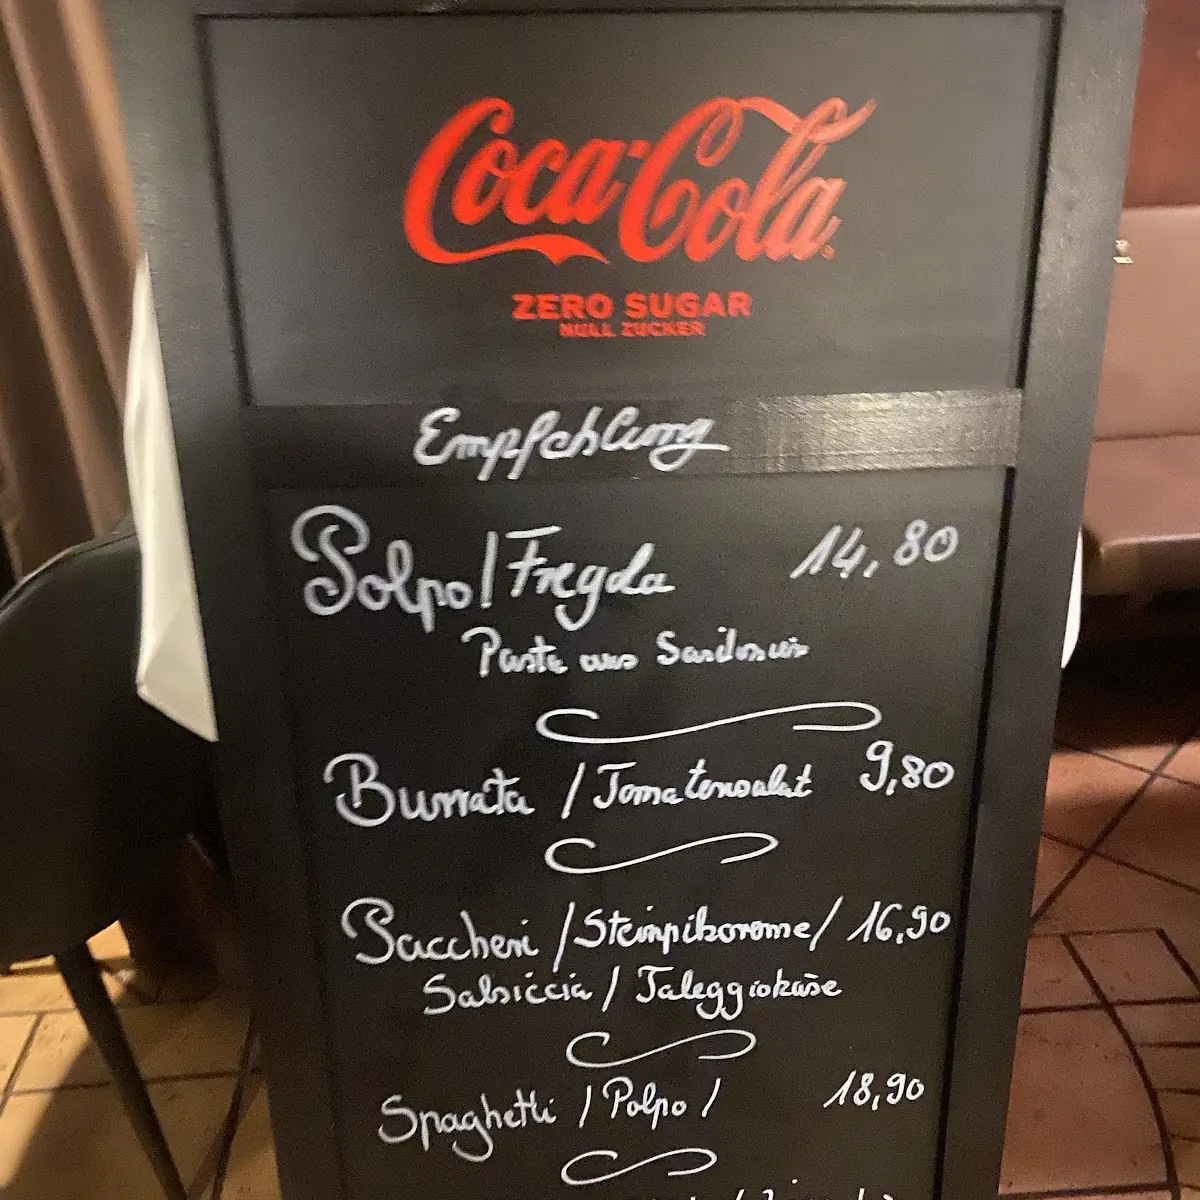 Coca-Cola
ZERO SUGAR
NULL ZUCKER
Empfehlung
Polpo/Fregola 14,80
Pasta aus Sardinien
Burrata / Tomatensalat 9,80
Paccheri /Steinpilzcreme/ 16,90
Salsiccia / Taleggiokäse
Spaghetti / Polpo / 18,90